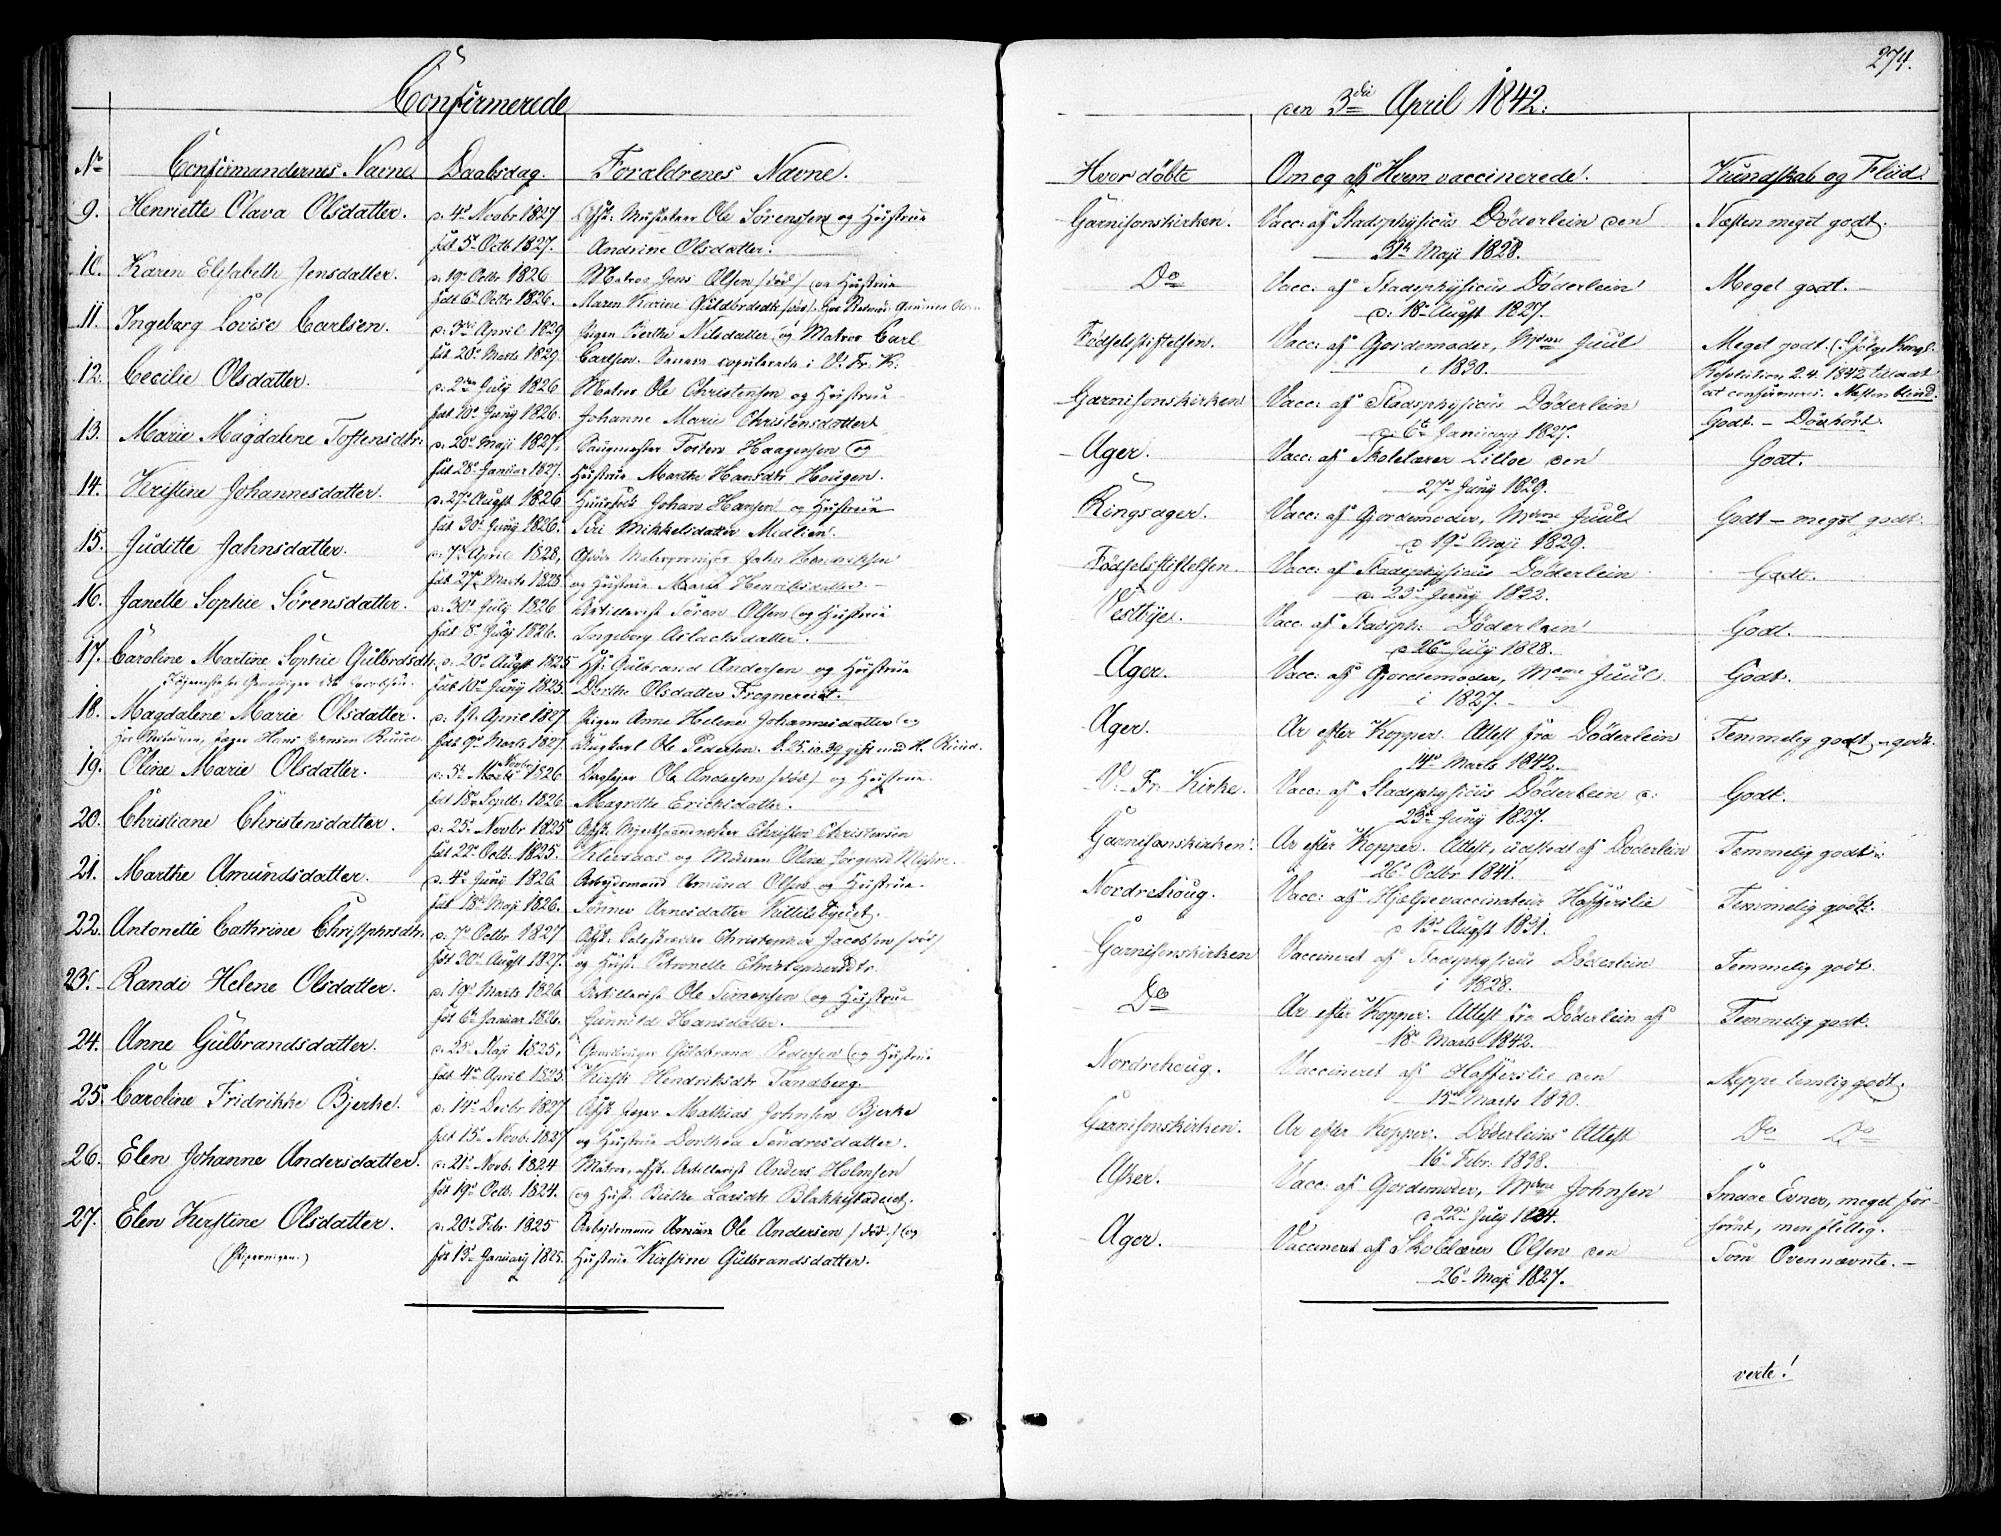 274.
Confirmerede
den 3die April 1842:
No
Confirmandernes Navne
Daabsdag.
Forældrenes Navne.
Hvor døbte
Om og af Hvem vaccinerede.
Kundskab og Fliid.
9. Henriette Olava Olsdatter.
d. 4de Novbr 1827
fød 5te Octb. 1827.
Afsk. Musketeer Ole Sørenssen og Hustrue
Andrine Olsdatter.
Garnisonskirken.
Vacc: af Stadsphysicus Döderlein den
31te Maji 1828.
Næsten meget godt.
10. Karen Elisabeth Jensdatter.
d. 19de Octbr 1826
født 6te Octbr 1826.
Matros Jens Olsen (død) og Hustrue
Maren Karine
Do
Vacc: af Stadsphysicus Döderlein
d. 18de Augst 1827.
Meget godt. -
11. Ingeborg Lovise Carlsen.
d. 3die April 1829
født 20de Marts 1829.
Pigen Berthe Nilsdatter og Matros Carl
Carlsen. Senere copulerede i V. Fr. K:
Fødselsstiftelsen.
Vacc: af Gjordemoder, Mdme Juul
i 1830.
Meget godt. (Ifølge Kongl.
Resolution 2.4.1842 tilladt
at confirmeres. Næsten blind.
12. Cecilie Olsdatter.
d. 2den July 1826
født 10de Juny 1826.
Matros Ole Christensen og Hustrue
Johanne Marie Christensdatter
Garnisonskirken
Vacc: af Stadsphysicus Döderlein
d. 6te January 1827.
Godt. - Døvhørt.
13. Marie Magdalene Tostensdtr.
d. 20de Maji 1827,
født 28de Januar 1827.
Saugmester Tosten Haagensen og
Hustrue Marthe Hansdtr Hougen.
Ager.
Vacc: af Skolelærer Lilloe den
27de Juny 1829.
Godt.
14. Kristine Johannesdatter.
d. 27de Augst 1826
født 30te Juny 1826.
Huusfolk Johan Hansen og Hustrue
Siri Mikkelsdatter Midlien.
Ringsager.
Vacc: af Gjordemoder, Mdme Juul
d 19de Maji 1829.
Godt - meget godt.
15. Juditte Jahnsdatter.
d. 7de April 1828,
født 27de Marts 1828
og Hustrue Marth Henriksdatter. -
Fødselsstiftelsen.
Vacc: af Stadsphysicus Döderlein
d. 23de Juny 1832.
Godt.
16. Janette Sophie Sörensdatter.
d. 30te July 1826
født 8de July 1826.
Artillerist Sören Olsen og Hustrue
Ingeborg Aslacksdatter.
Vestbye.
Vacc. af Stadsph: Döderlein
d 26de July 1828.
Godt.
17. Caroline Martine Sophie Gulbrdsdtr.
d. 20de Augst 1825
født 10de Juny 1825.
Hf. Gulbrand Andersen og Hustrue
Dorthe Olsdatter Frognereiet.
Ager.
Vacc: af Gjordemoder, Mdme Juul
i 1827. -
Godt.
18. Magdalene Marie Olsdatter.
d. 1st. April 1827
født 9de Marts 1827.
Pigen Anne Helene Johannesdatter og
Ungkarl Ole Pedersen. D. 25.10.39 gift med H. Ruud.
Ager.
Ar efter Kopper. Attest fra Döderlein
14de Marts 1842.
Temmelig godt - godt.
19. Oline Marie Olsdatter.
d. 5te Novbr 1826
født 18de Septb. 1826.
Dagleier Ole Andersen (død) og Hustrue
Magrethe Ericksdatter.
V. Fr. Kirke.
Vacc: af Stadsphysicus Döderlein d:
23de Juny 1827.
Godt.
20. Christiane Christensdatter.
d. 25de Novbr 1825
født 22de Octb. 1825.
Christen Christensen
og Moderen Oline
Garnisonskirken.
Ar efter Kopper. Attest, udstedt af Döderlein
26de Octbr 1841.
Temmelig godt.
21. Marthe Amundsdatter.
d. 4de Juny 1826
født 18de Maji 1826.
Arbeidsmand Amund Olsen og Hustrue
Arnesdatter
Nordrehoug.
Vacc: af Hjelpevaccinateur Hofferslie
d 13de Augst 1831.
Temmelig godt.
22. Antonette Cathrine Christphrsdtr.
d. 7de Octbr 1827
født 30te Augst 1827.
Jacobsen (død)
og Hust. Petronelle Christophersdtr.
Garnisonskirken
Vaccineret af Stadsphysicus Döderlein
i 1828.
Temmelig godt.
23. Randi Helene Olsdatter.
d. 19de Marts 1826
født 6te Januar 1826.
Artillerist Ole Simensen og Hustrue
Gunnild Hansdatter.
Do
Ar efter Kopper. Attest fra Döderlein af
18de Marts 1842.
Temmelig godt.
24. Anne Gulbrandsdatter.
d. 23de Maji 1825,
født 4de April 1825.
Gaardbruger Guldbrand Pedersen og Hustrue
Kirsti Hendriksdtr Tandberg.
Nordrehoug.
Vaccineret af Hofferslie den
15de Marts 1830.
Neppe temlig godt.
25. Caroline Fridrikke Bjerke.
d. 14de Decbr 1827
født 15de Novb. 1827
Afsk. Jæger Mathias Johnsen Bjerke
og Hustrue Dorthea Sendresdatter.
Garnisonskirken.
Ar efter Kopper. Döderleins Attest
16de Febr: 1838.
Do Do
26. Elen Johanne Andersdatter.
d. 21de Novb. 1824
født 19de Octb. 1824.
Matros, afsk. Artillerist Anders Holmsen
og Hust. Birthe Larsdtr Blakkistadeiet.
Asker.
Vacc: af Gjordemoder, Mdme Johnsen
d 22de July 1834.
Smaae Evner, meget for-
sømt, men flittig.
27. Elen Kirstine Olsdatter.
d. 20de Febr. 1825
født 13de January 1825.
Arbeidsmand Ole Andersen (død.) og
Hustrue Kirstine Gulbrandsdatter.
Ager.
Vaccineret af Skolelærer Olsen den
26de Maji 1827.
Som Ovennævnte. -
verte!